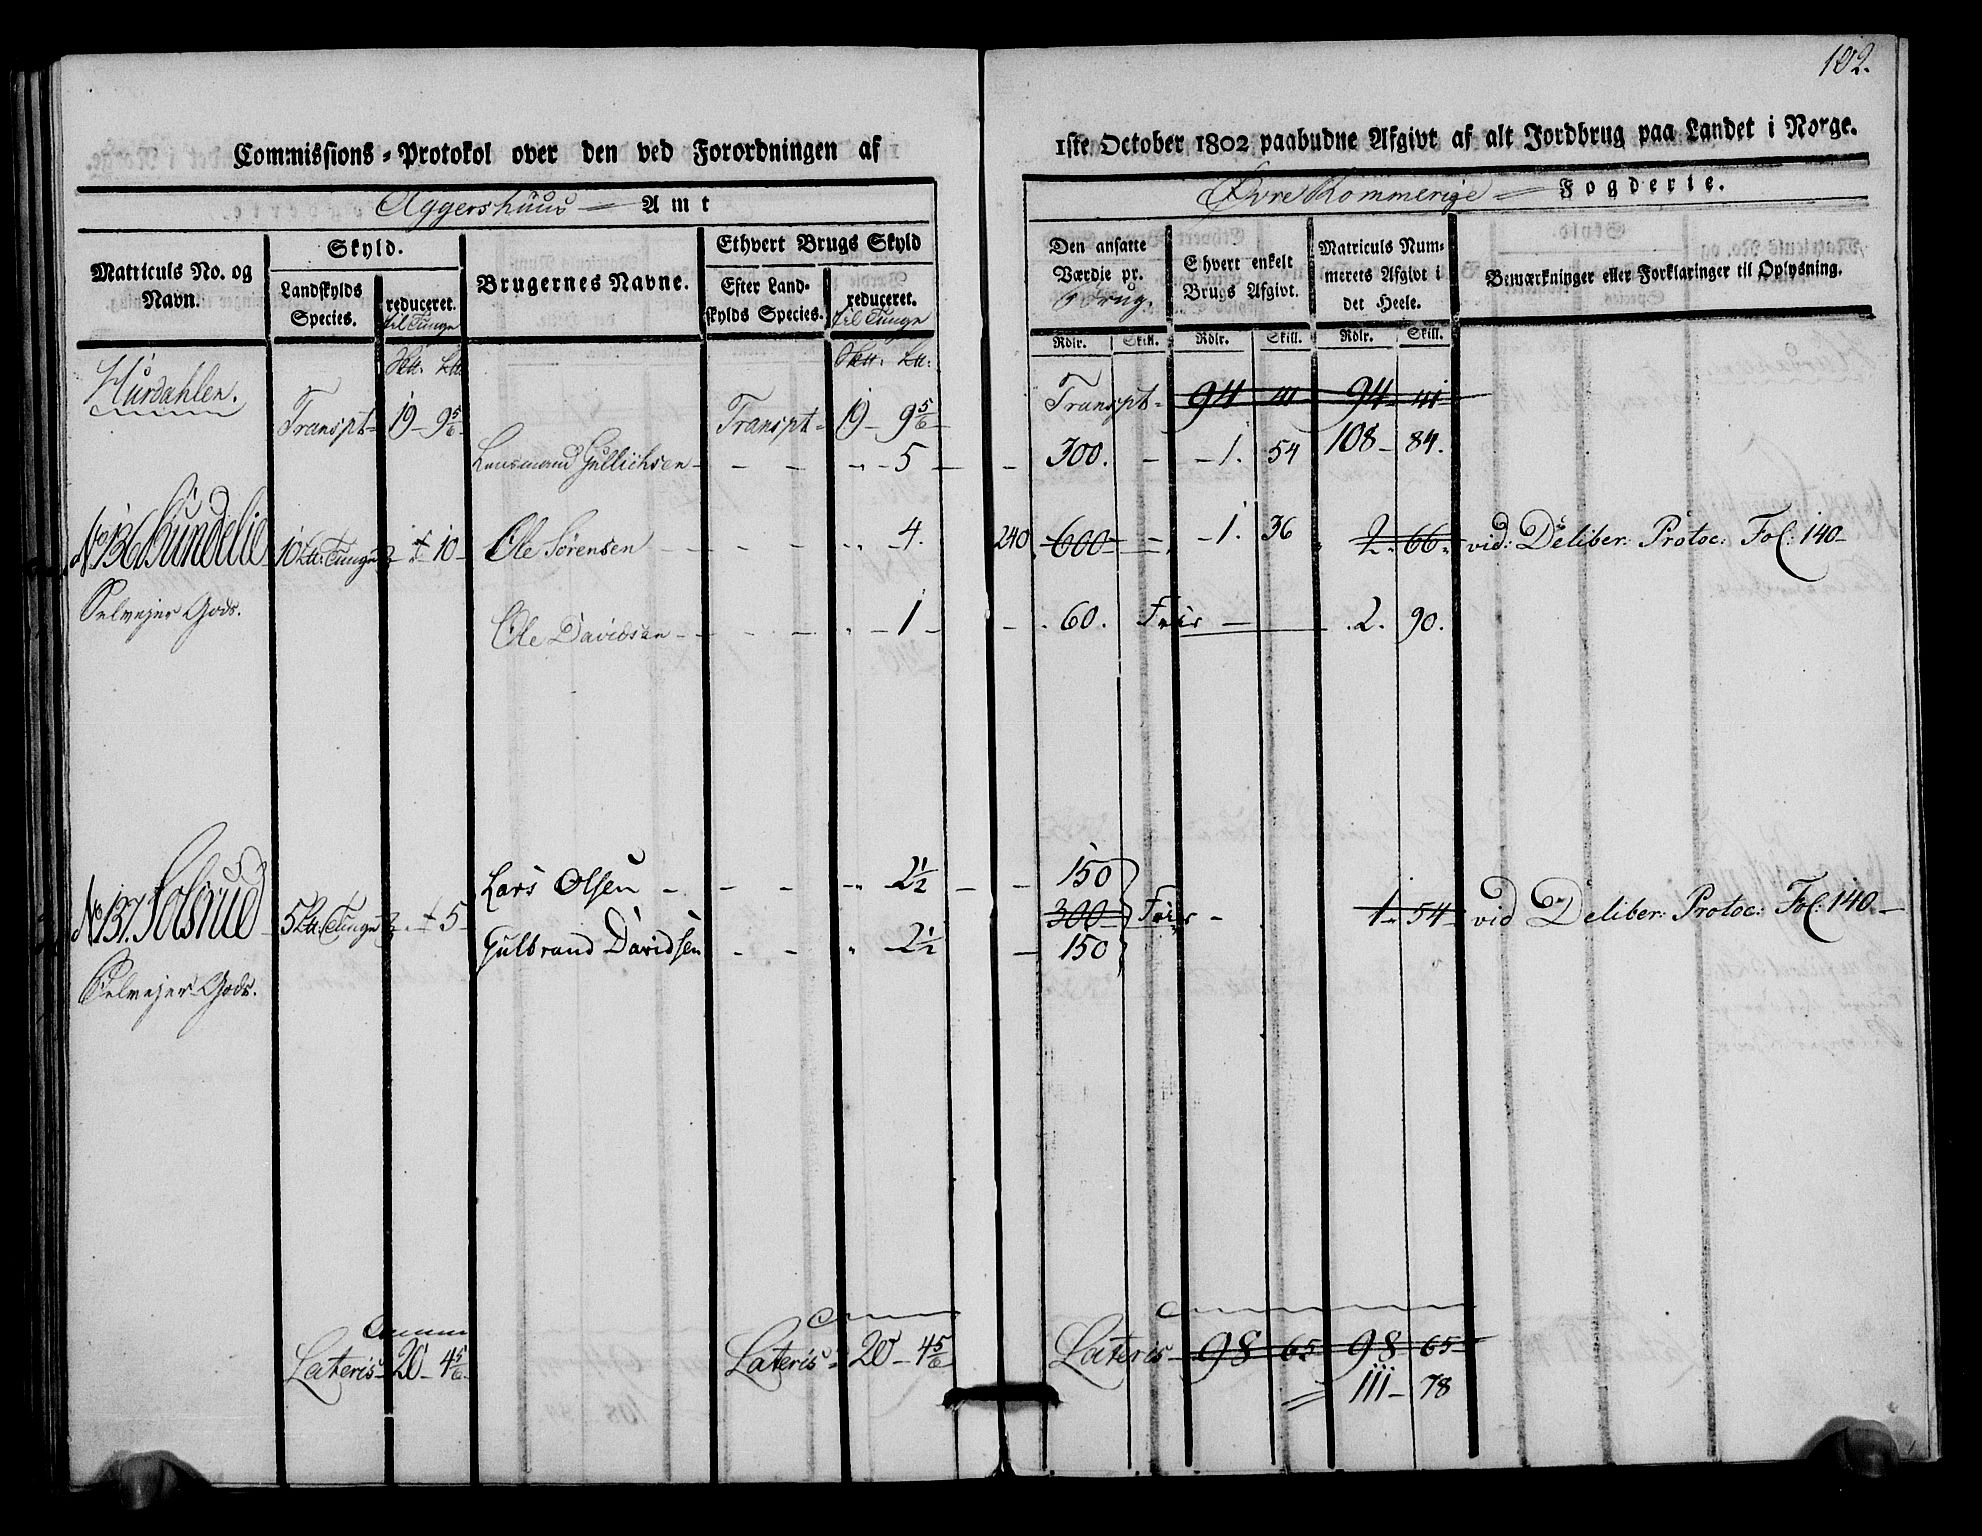 102.
Commissions-Protokol over den ved Forordningen af
1ste October 1802 paabudne Afgivt af alt Jordbrug paa Landet i Norge.
Aggershuus Amt
Øvre Rommerige Fogderie.
Matriculs No. og Navn.
Skyld.
Landskylds Species.
reduceret. til Tunge
Brugernes Navne.
Ethvert Brugs Skyld
Efter Landskylds Species.
reduceret. til Tunge
Den ansatte Værdie pr. Brug.
Ehvert enkelt Brugs Afgivt.
Matriculs Nummerets Afgivt i det Heele.
Bemærkninger eller Forklaringer til Oplysning.
Rdlr. Skill. Rdlr. Skill. Rdlr. Skill.
Hurdahlen.
Transpt 19 9 5/6 Transpt 19 9 5/6 Transpt 94 41 94 41
Lensmand Gullichsen 5 300. 1. 54 108 84.
No 136 Sundelie 10 Lt: Tunge 10 Ole Sørensen 4. 240 600 1. 36 2. 66. vid: Deliber: Protoc: Fol: 140
Selvejer Gods. Ole Davidsen 1 60. Frie 2. 90.
Lars Olsen 2 1/2 150
No 137. Solsrud 5 Lt: Tunge 5 300 Frie 1. 54 vid Deliber: Protoc: Fol: 140
Gulbrand Davidsen 2 1/2 150
Selvejer Gods.
Lateris 20 4 5/6 Lateris 20 4 5/6 Lateris 98 65 98 65
111 78